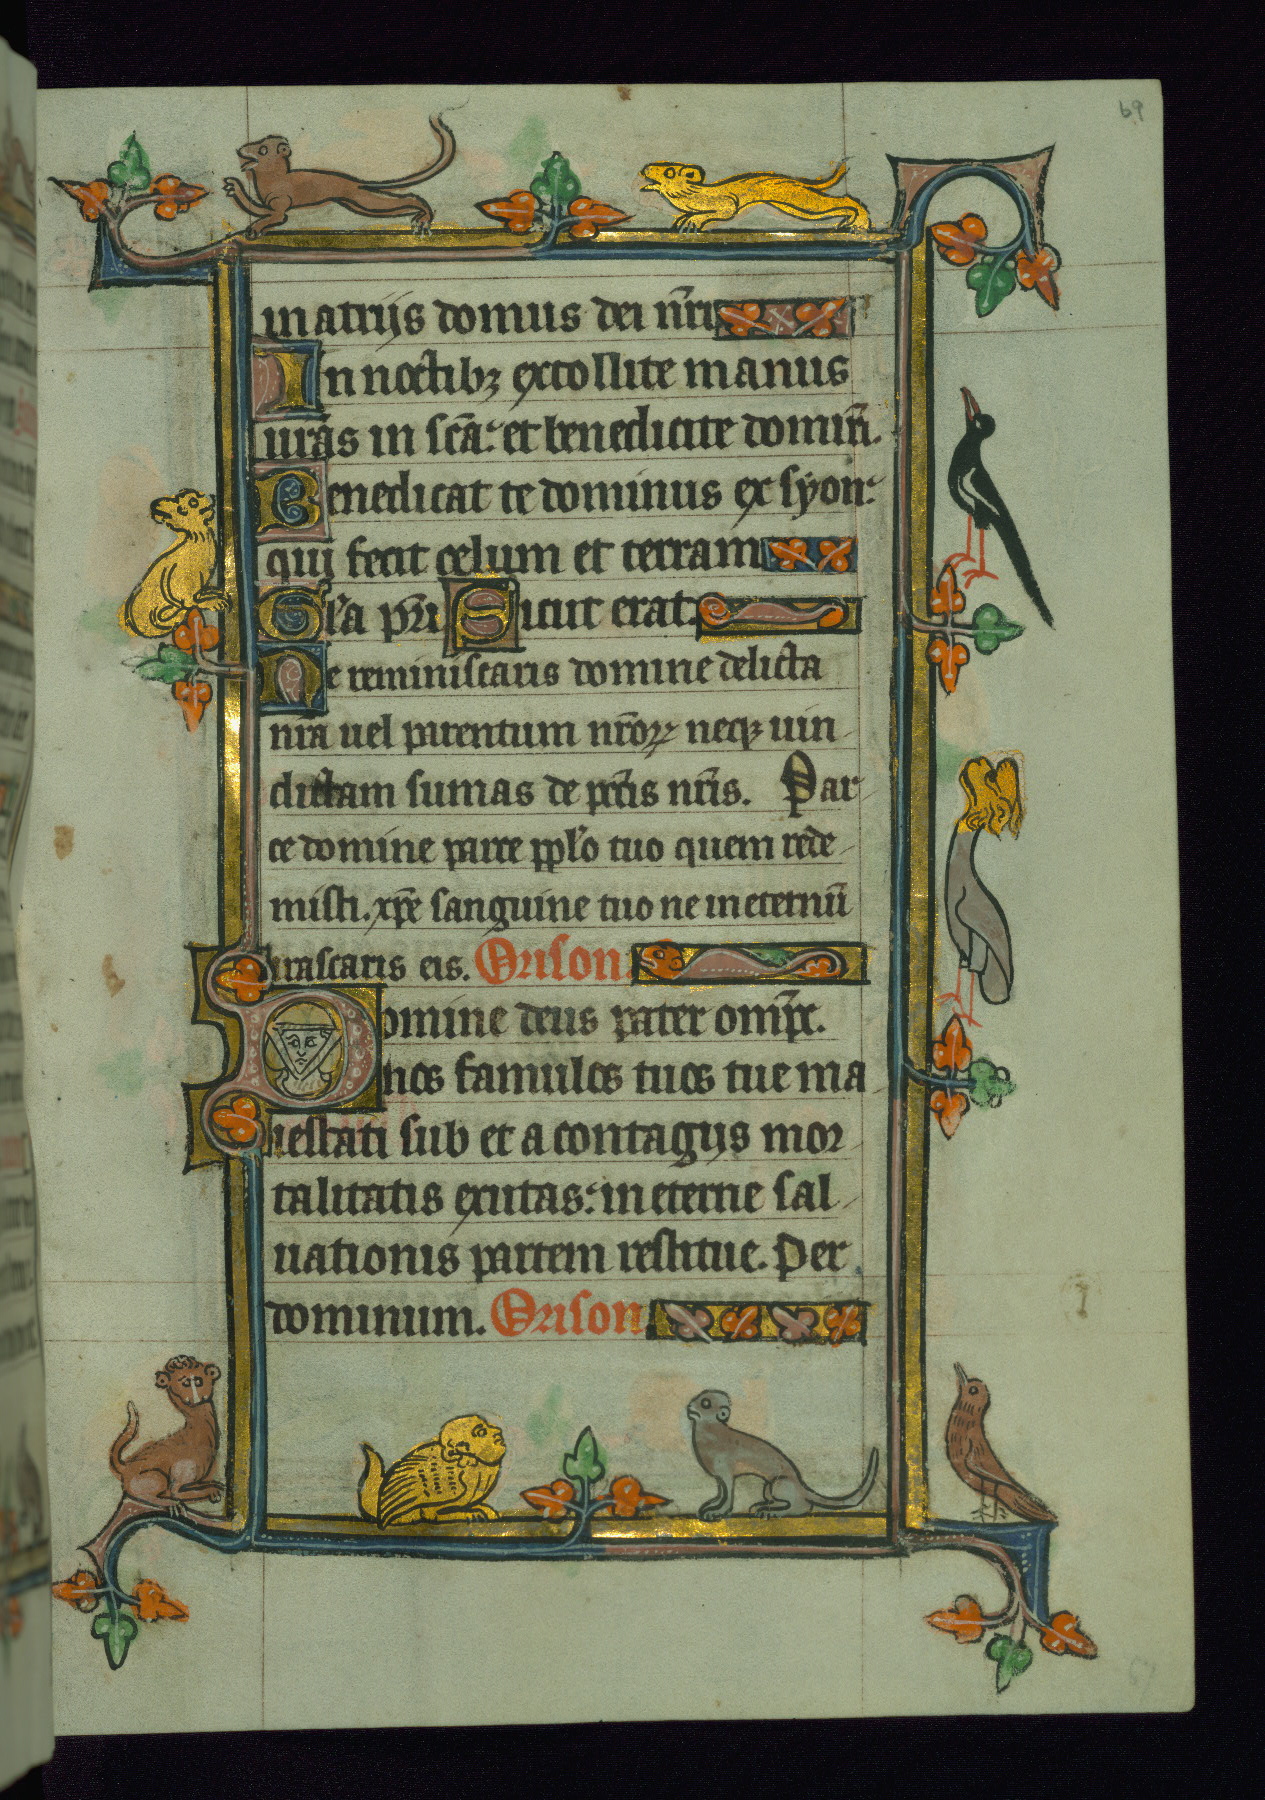 69
in atriis domus dei nr̄i
In noctibꝫ extollite manus
urās in scā: et benedicite domin̄.
Benedicat te dominus ex syon:
qui fecit celum et terram
Gl'a pr̄i Sicut erat.
Ne reminiscaris domine delicta
nrā uel parentum nr̄oꝝ neqꝫ uin
dictam sumas de pctīs nr̄is. Par
ce domine parce ppl'o tuo quem rede
misti. xp̄e sanguine tuo ne in eternū
irascaris eis. Orison
Domine deus pater omp̄r.
nos famulos tuos tue ma
iestati sub et a contagiis mor
talitatis exutas: in eterne sal
uationis partem restitue. Per
dominum. Orison